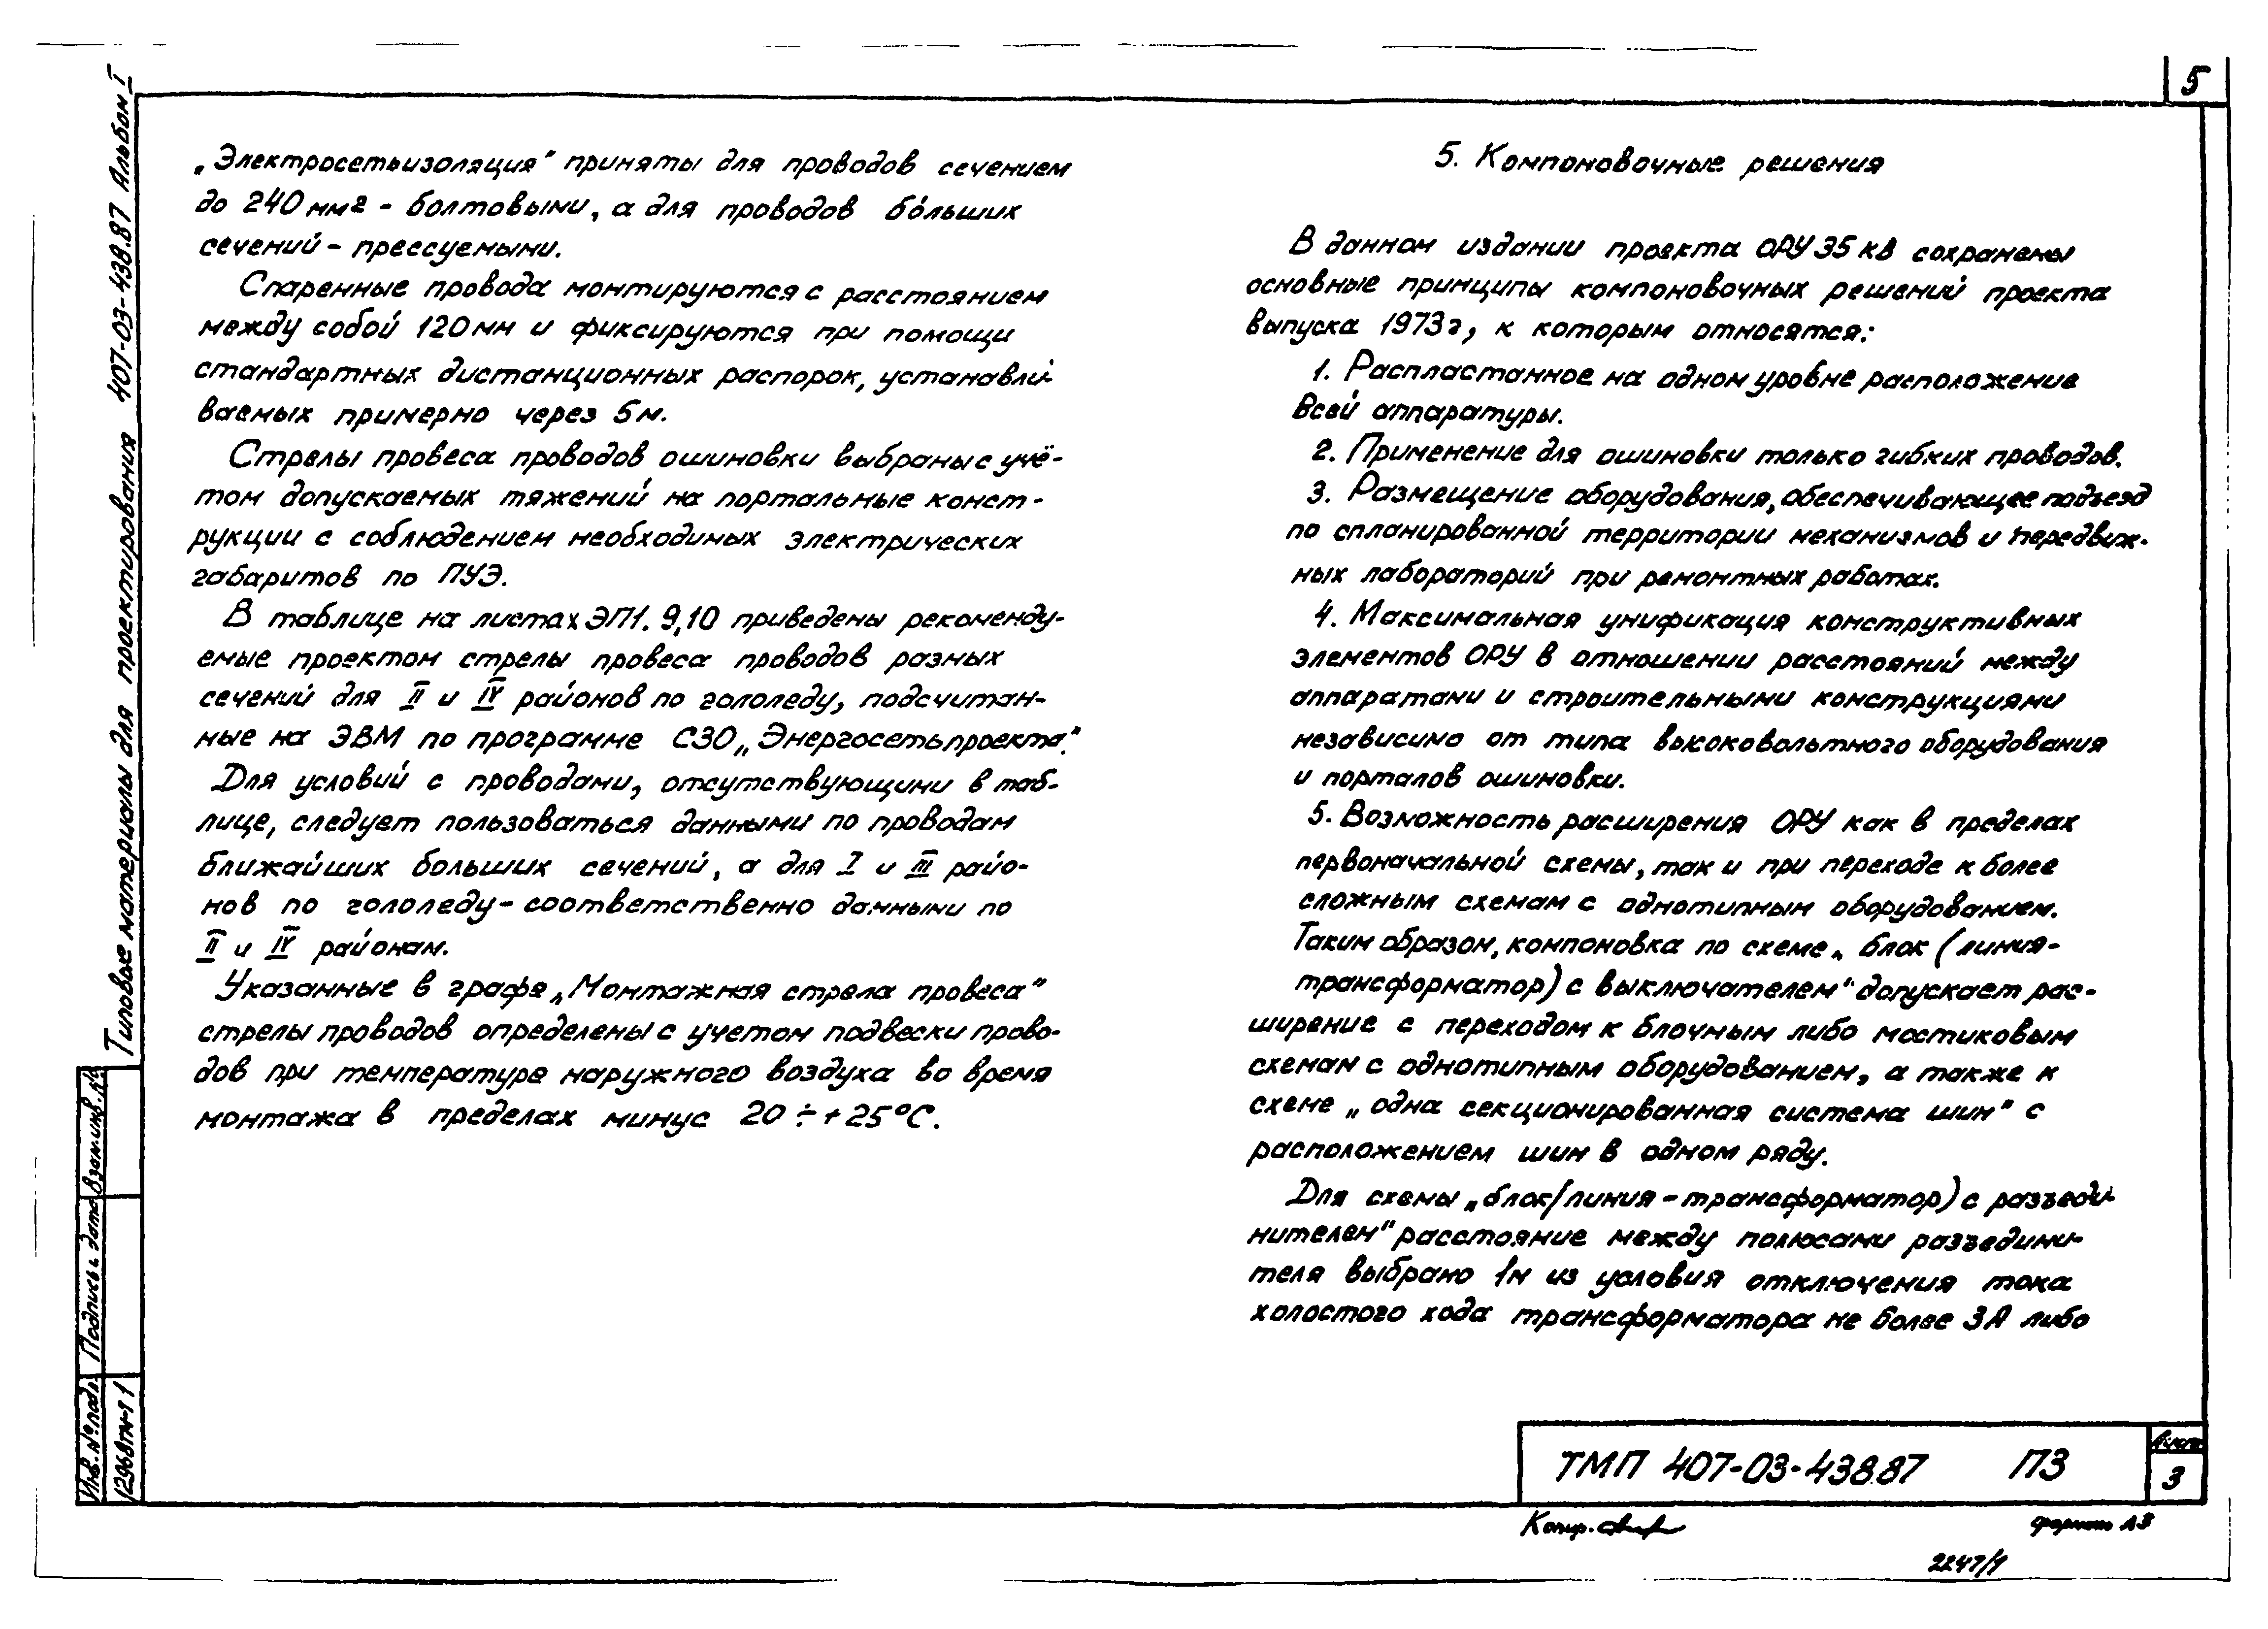 5
Типовые материалы для проектирования 407-03-438.87 Альбом I
„Электросетьизоляция" приняты для проводов сечением
до 240 мм2 - болтовыми, а для проводов бо́льших
сечений - прессуемыми.
Спаренные провода монтируются с расстоянием
между собой 120 мм и фиксируются при помощи
стандартных дистанционных распорок, устанавли-
ваемых примерно через 5 м.
Стрелы провеса проводов ошиновки выбраны с учё-
том допускаемых тяжений на портальные конст-
рукции с соблюдением необходимых электрических
габаритов по ПУЭ.
В таблице на листах ЭП1. 9,10 приведены рекоменду-
емые проектом стрелы провеса проводов разных
сечений для II и IV районов по гололеду, подсчитан-
ные на ЭВМ по программе СЗО „Энергосетьпроекта".
Для условий с проводами, отсутствующими в таб-
лице, следует пользоваться данными по проводам
ближайших больших сечений, а для I и III райо-
нов по гололеду - соответственно данными по
II и IV районам.
Указанные в графе „Монтажная стрела провеса"
стрелы проводов определены с учетом подвески прово-
дов при температуре наружного воздуха во время
монтажа в пределах минус 20 ÷ + 25°С.
5. Компоновочные решения
В данном издании проекта ОРУ 35 кВ сохранены
основные принципы компоновочных решений проекта
выпуска 1973 г, к которым относятся:
1. Распластанное на одном уровне расположение
всей аппаратуры.
2. Применение для ошиновки только гибких проводов.
3. Размещение оборудования, обеспечивающее подъезд
по спланированной территории механизмов и передвиж-
ных лабораторий при ремонтных работах.
4. Максимальная унификация конструктивных
элементов ОРУ в отношении расстояний между
аппаратами и строительными конструкциями
независимо от типа высоковольтного оборудования
и порталов ошиновки.
5. Возможность расширения ОРУ как в пределах
первоначальной схемы, так и при переходе к более
сложным схемам с однотипным оборудованием.
Таким образом, компоновка по схеме „ блок (линия-
трансформатор) с выключателем" допускает рас-
ширение с переходом к блочным либо мостиковым
схемам с однотипным оборудованием, а также к
схеме „ одна секционированная система шин" с
расположением шин в одном ряду.
Для схемы „блок/линия - трансформатор) с разъеди-
нителем" расстояние между полюсами разъедини-
теля выбрано 1м из условия отключения тока
холостого хода трансформатора не более 3 А либо
Взам.инв.№
Подпись и дата
Инв.№ подл.
12968тм-1
ТМП 407-03-438.87 ПЗ
Лист
3
Копир.
формат А3
2247/1